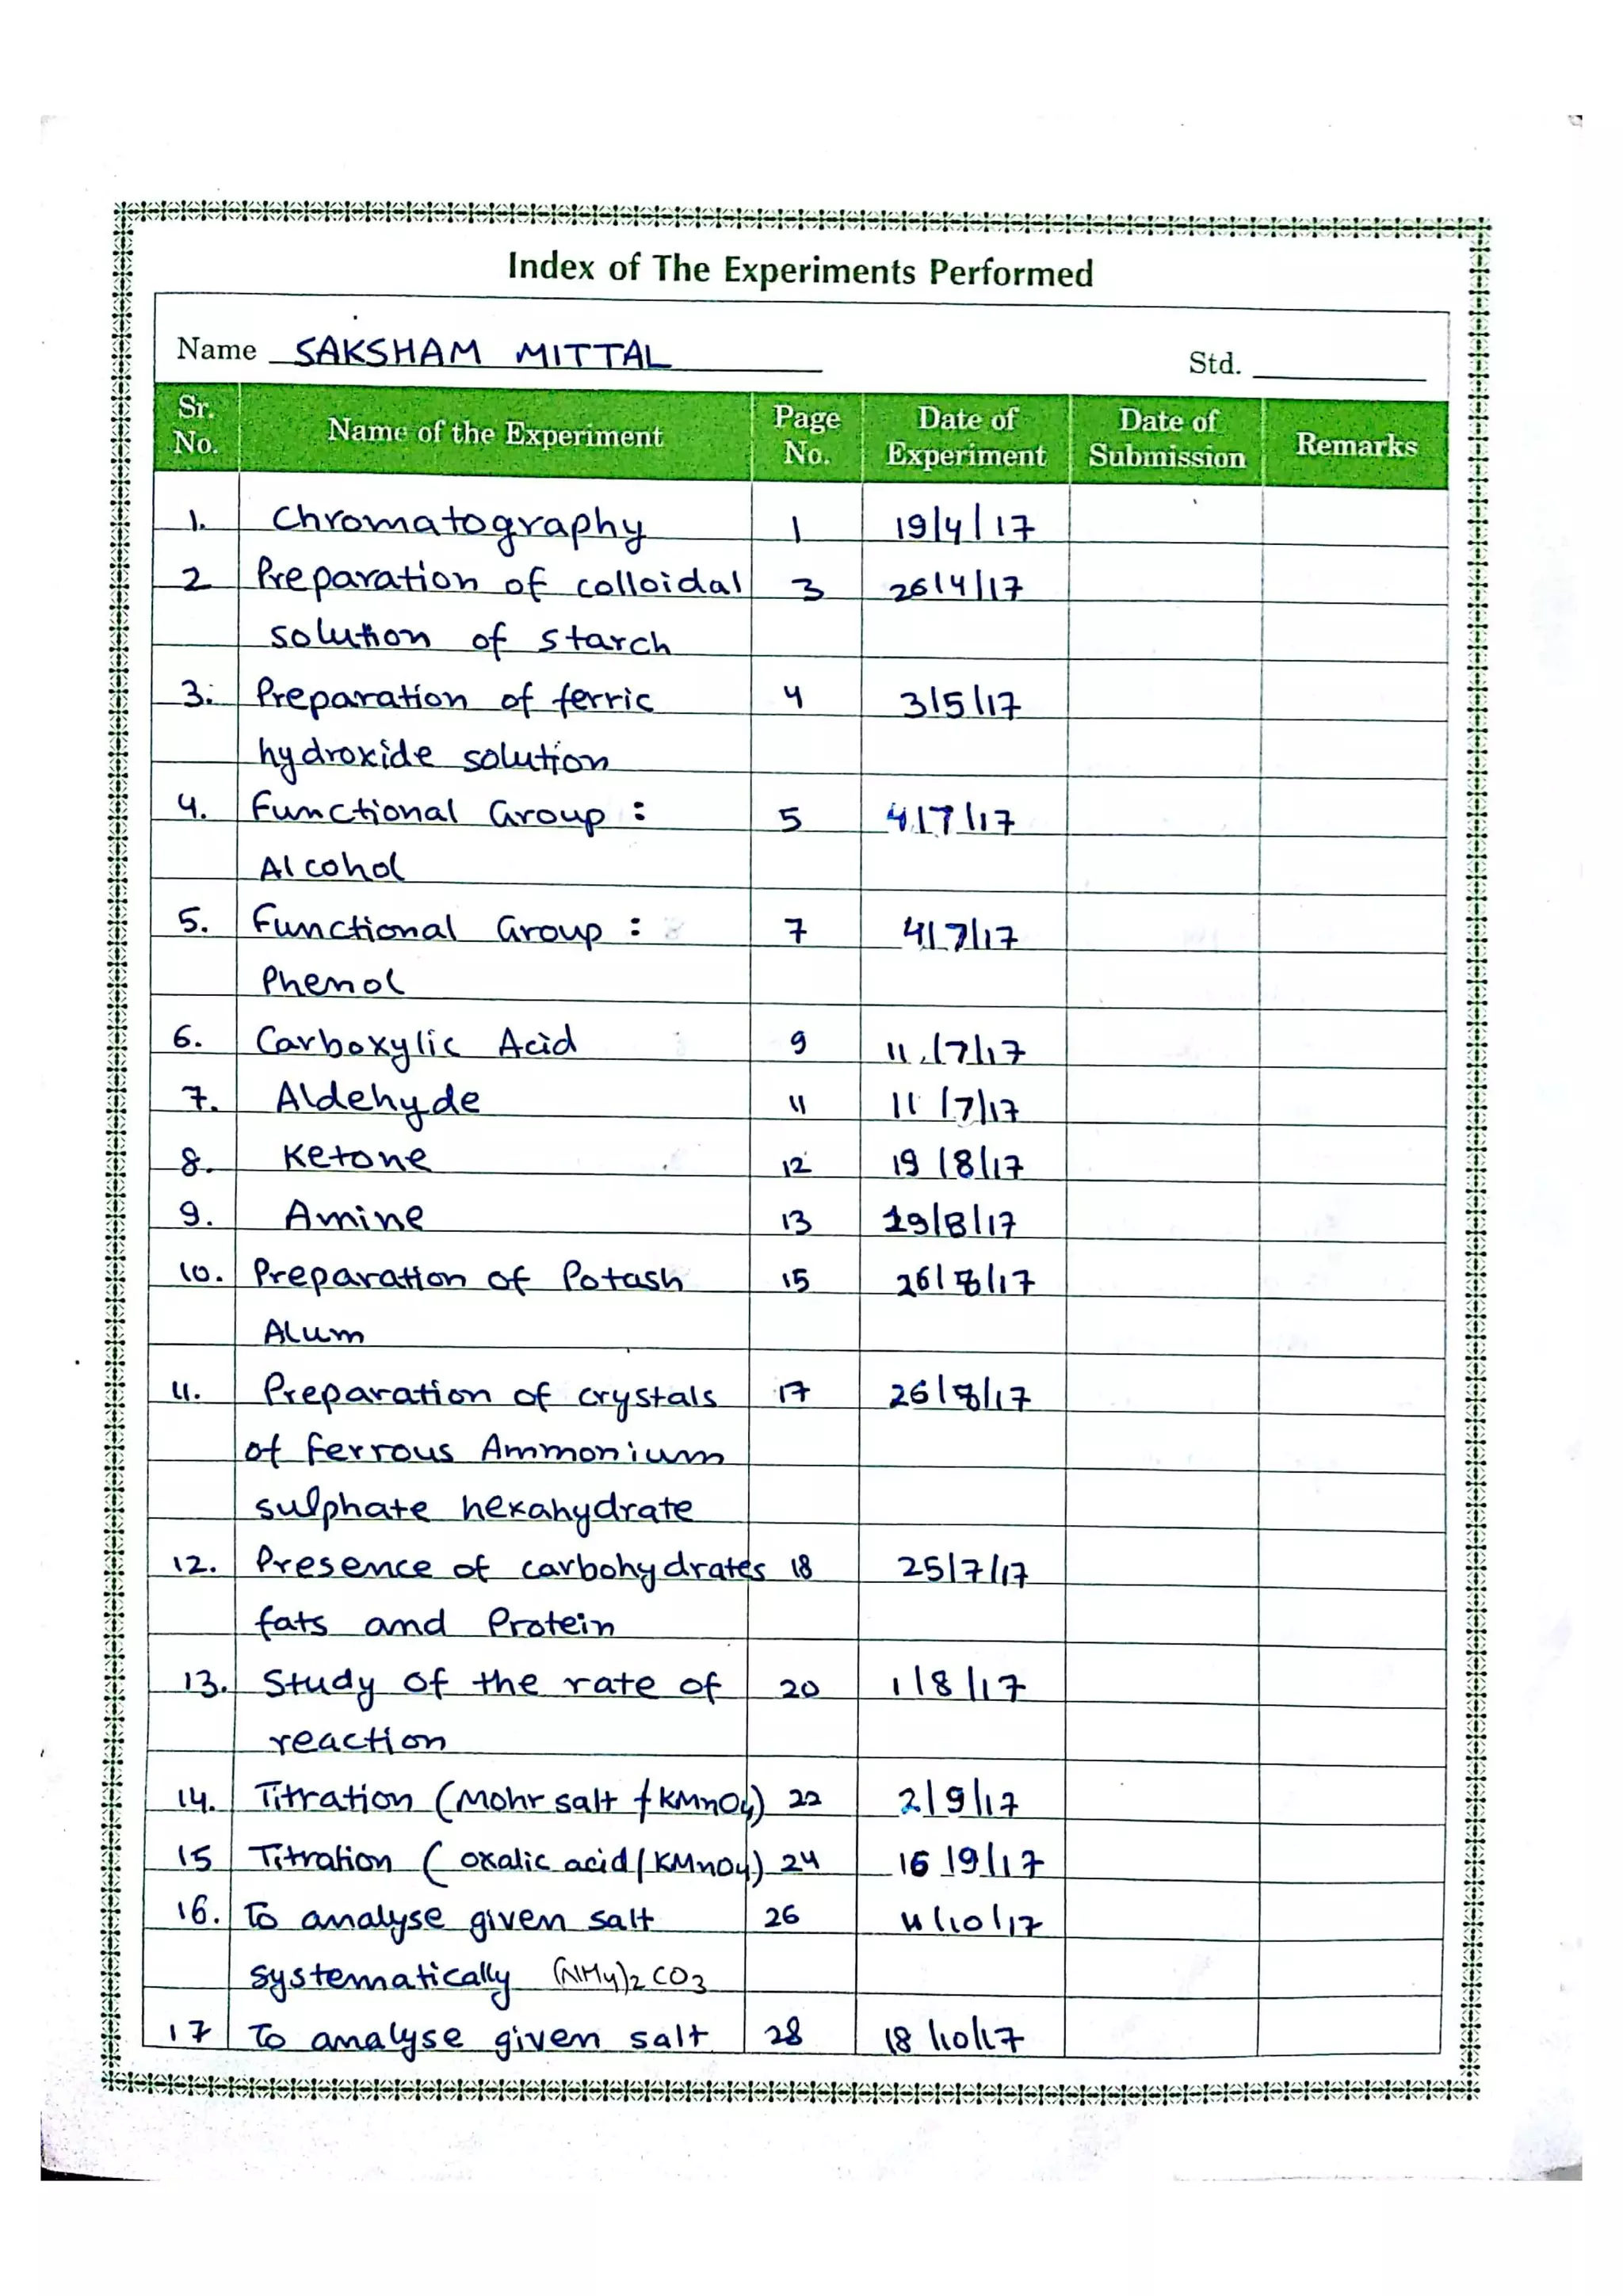 Index of The Experiments Performed
Name SAKSHAM MITTAL Std.
Sr. No. Name of the Experiment Page No. Date of Experiment Date of Submission Remarks
1. Chromatography 1 19/4/17
2 Preparation of colloidal 3 26/4/17
solution of starch
3. Preparation of ferric 4 3/5/17
hydroxide solution
4. Functional Group : 5 4/7/17
Alcohol
5. Functional Group : 7 4/7/17
Phenol
6. Carboxylic Acid 9 11/7/17
7. Aldehyde 11 11/7/17
8. Ketone 12 19/8/17
9. Amine 13 19/8/17
10. Preparation of Potash 15 26/8/17
Alum
11. Preparation of crystals 17 26/8/17
of ferrous Ammonium
sulphate hexahydrate
12. Presence of carbohydrates 18 25/7/17
fats and Protein
13. Study of the rate of 20 1/8/17
reaction
14. Titration (Mohr salt / KMnO4) 22 2/9/17
15 Titration ( oxalic acid / KMnO4) 24 16/9/17
16. To analyse given salt 26 /10/17
systematically (NH4)2 CO3
17 To analyse given salt 28 18/10/17